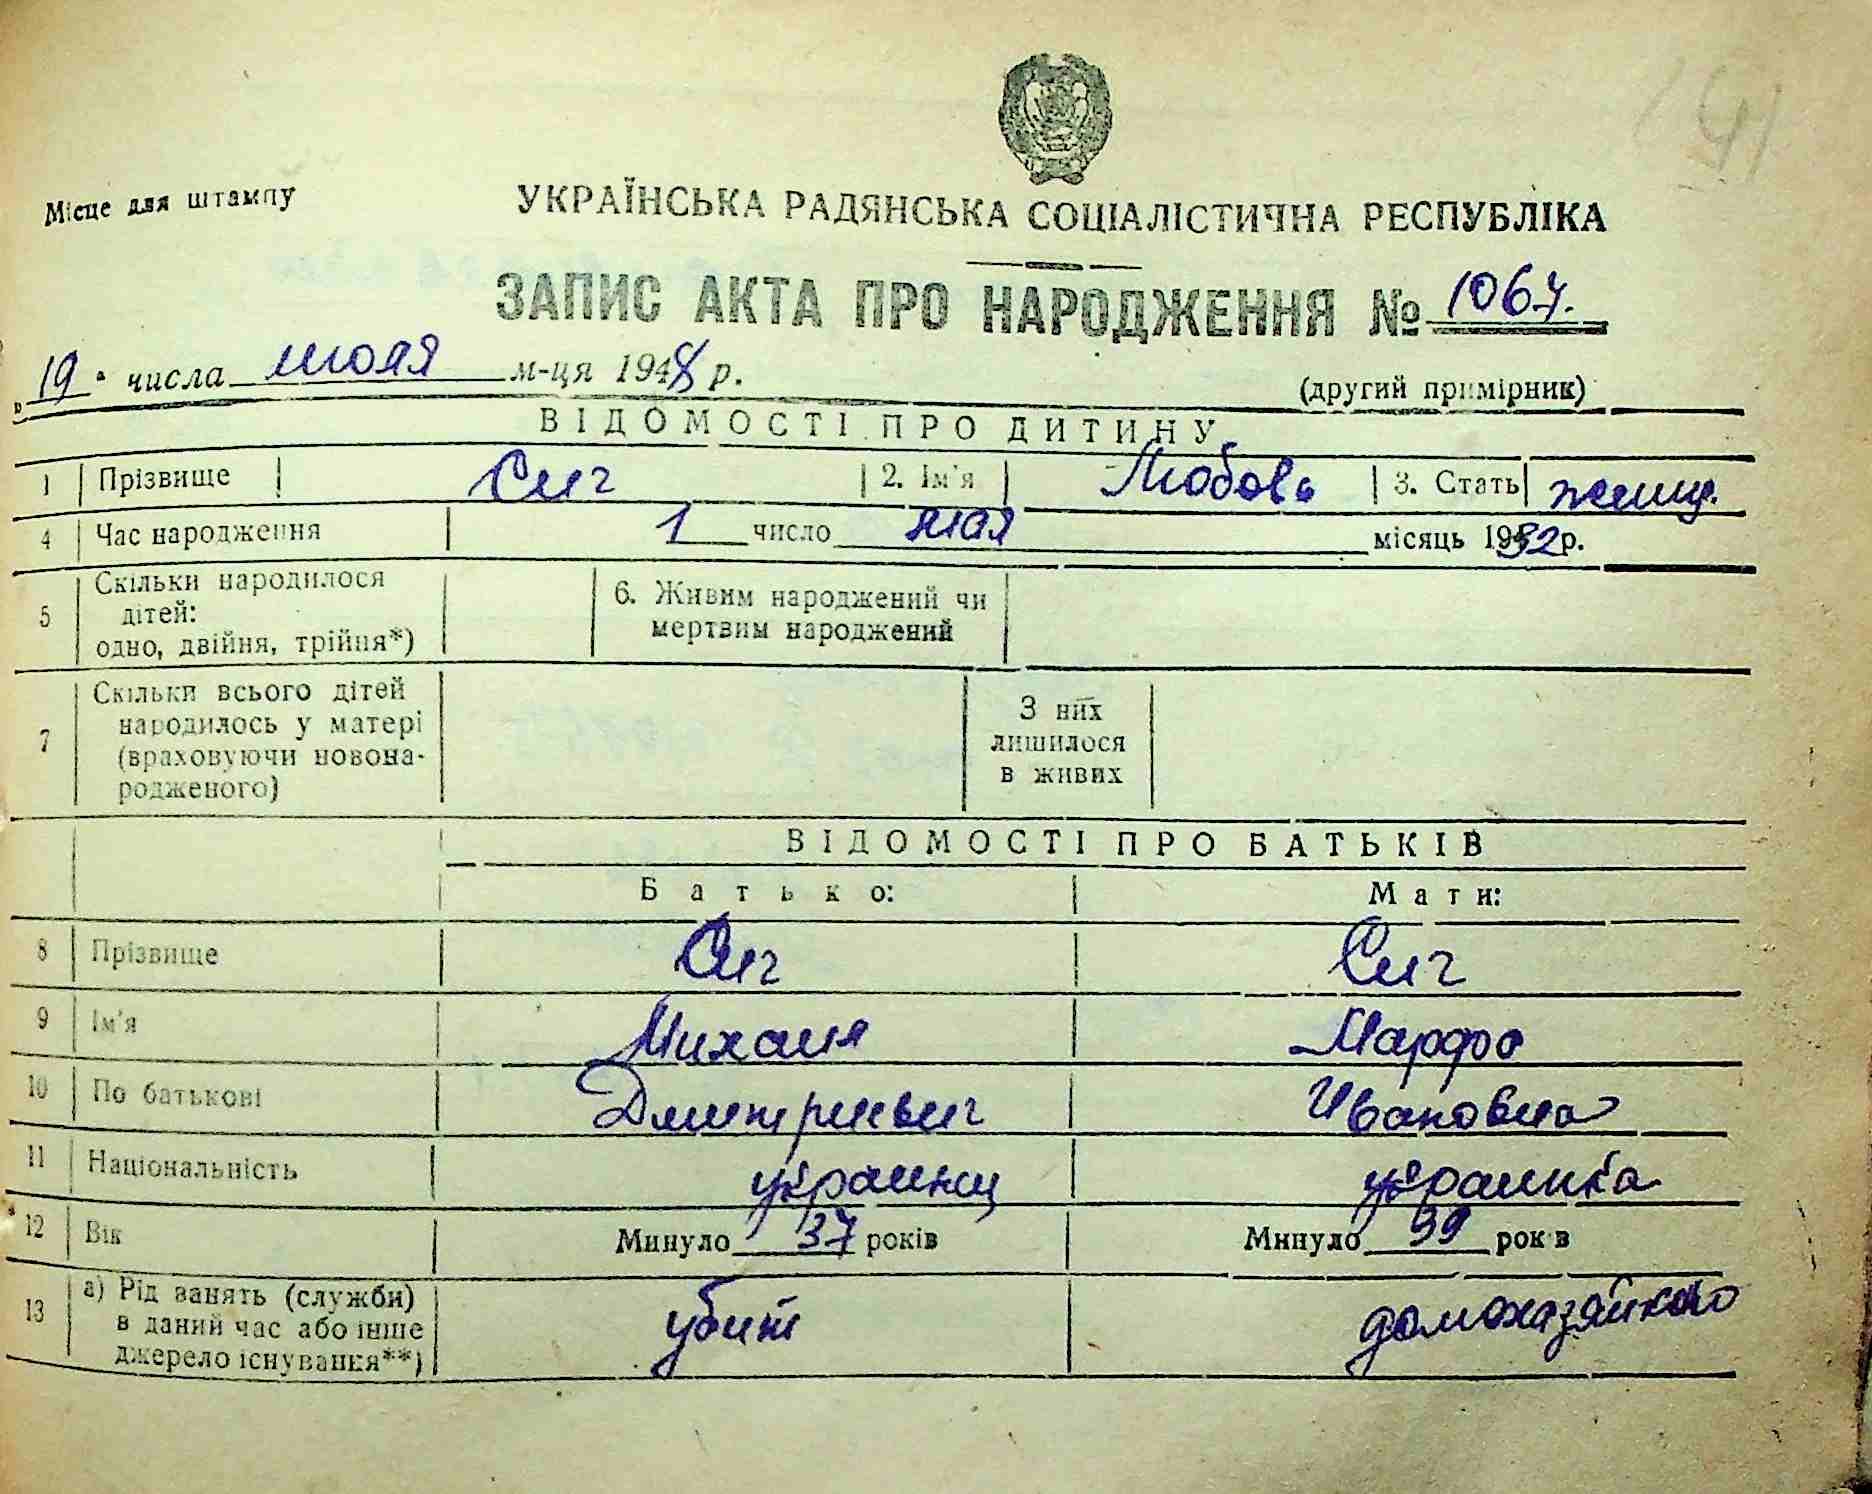 Місце для штампу
УКРАЇНСЬКА РАДЯНСЬКА СОЦІАЛІСТИЧНА РЕСПУБЛІКА
ЗАПИС АКТА ПРО НАРОДЖЕННЯ № 1067.
„19“ числа июля м-ця 1948 р.
(другий примірник)
ВІДОМОСТІ ПРО ДИТИНУ
1 Прізвище Сич 2. Ім'я Любовь 3. Стать женщ.
4 Час народження 1 число мая місяць 1932 р.
5 Скільки народилося
дітей:
одно, двійня, трійня*)
6. Живим народжений чи
мертвим народжений
7 Скільки всього дітей
народилось у матері
(враховуючи новона-
родженого)
З них
лишилося
в живих
ВІДОМОСТІ ПРО БАТЬКІВ
Батько: Мати:
8 Прізвище Сич Сич
9 Ім'я Михаил Марфа
10 По батькові Дмитриевич Ивановна
11 Національність украинец украинка
12 Вік Минуло 37 років Минуло 39 років
13 а) Рід занять (служби)
в даний час або інше
джерело існування**)
убит домохазяйка